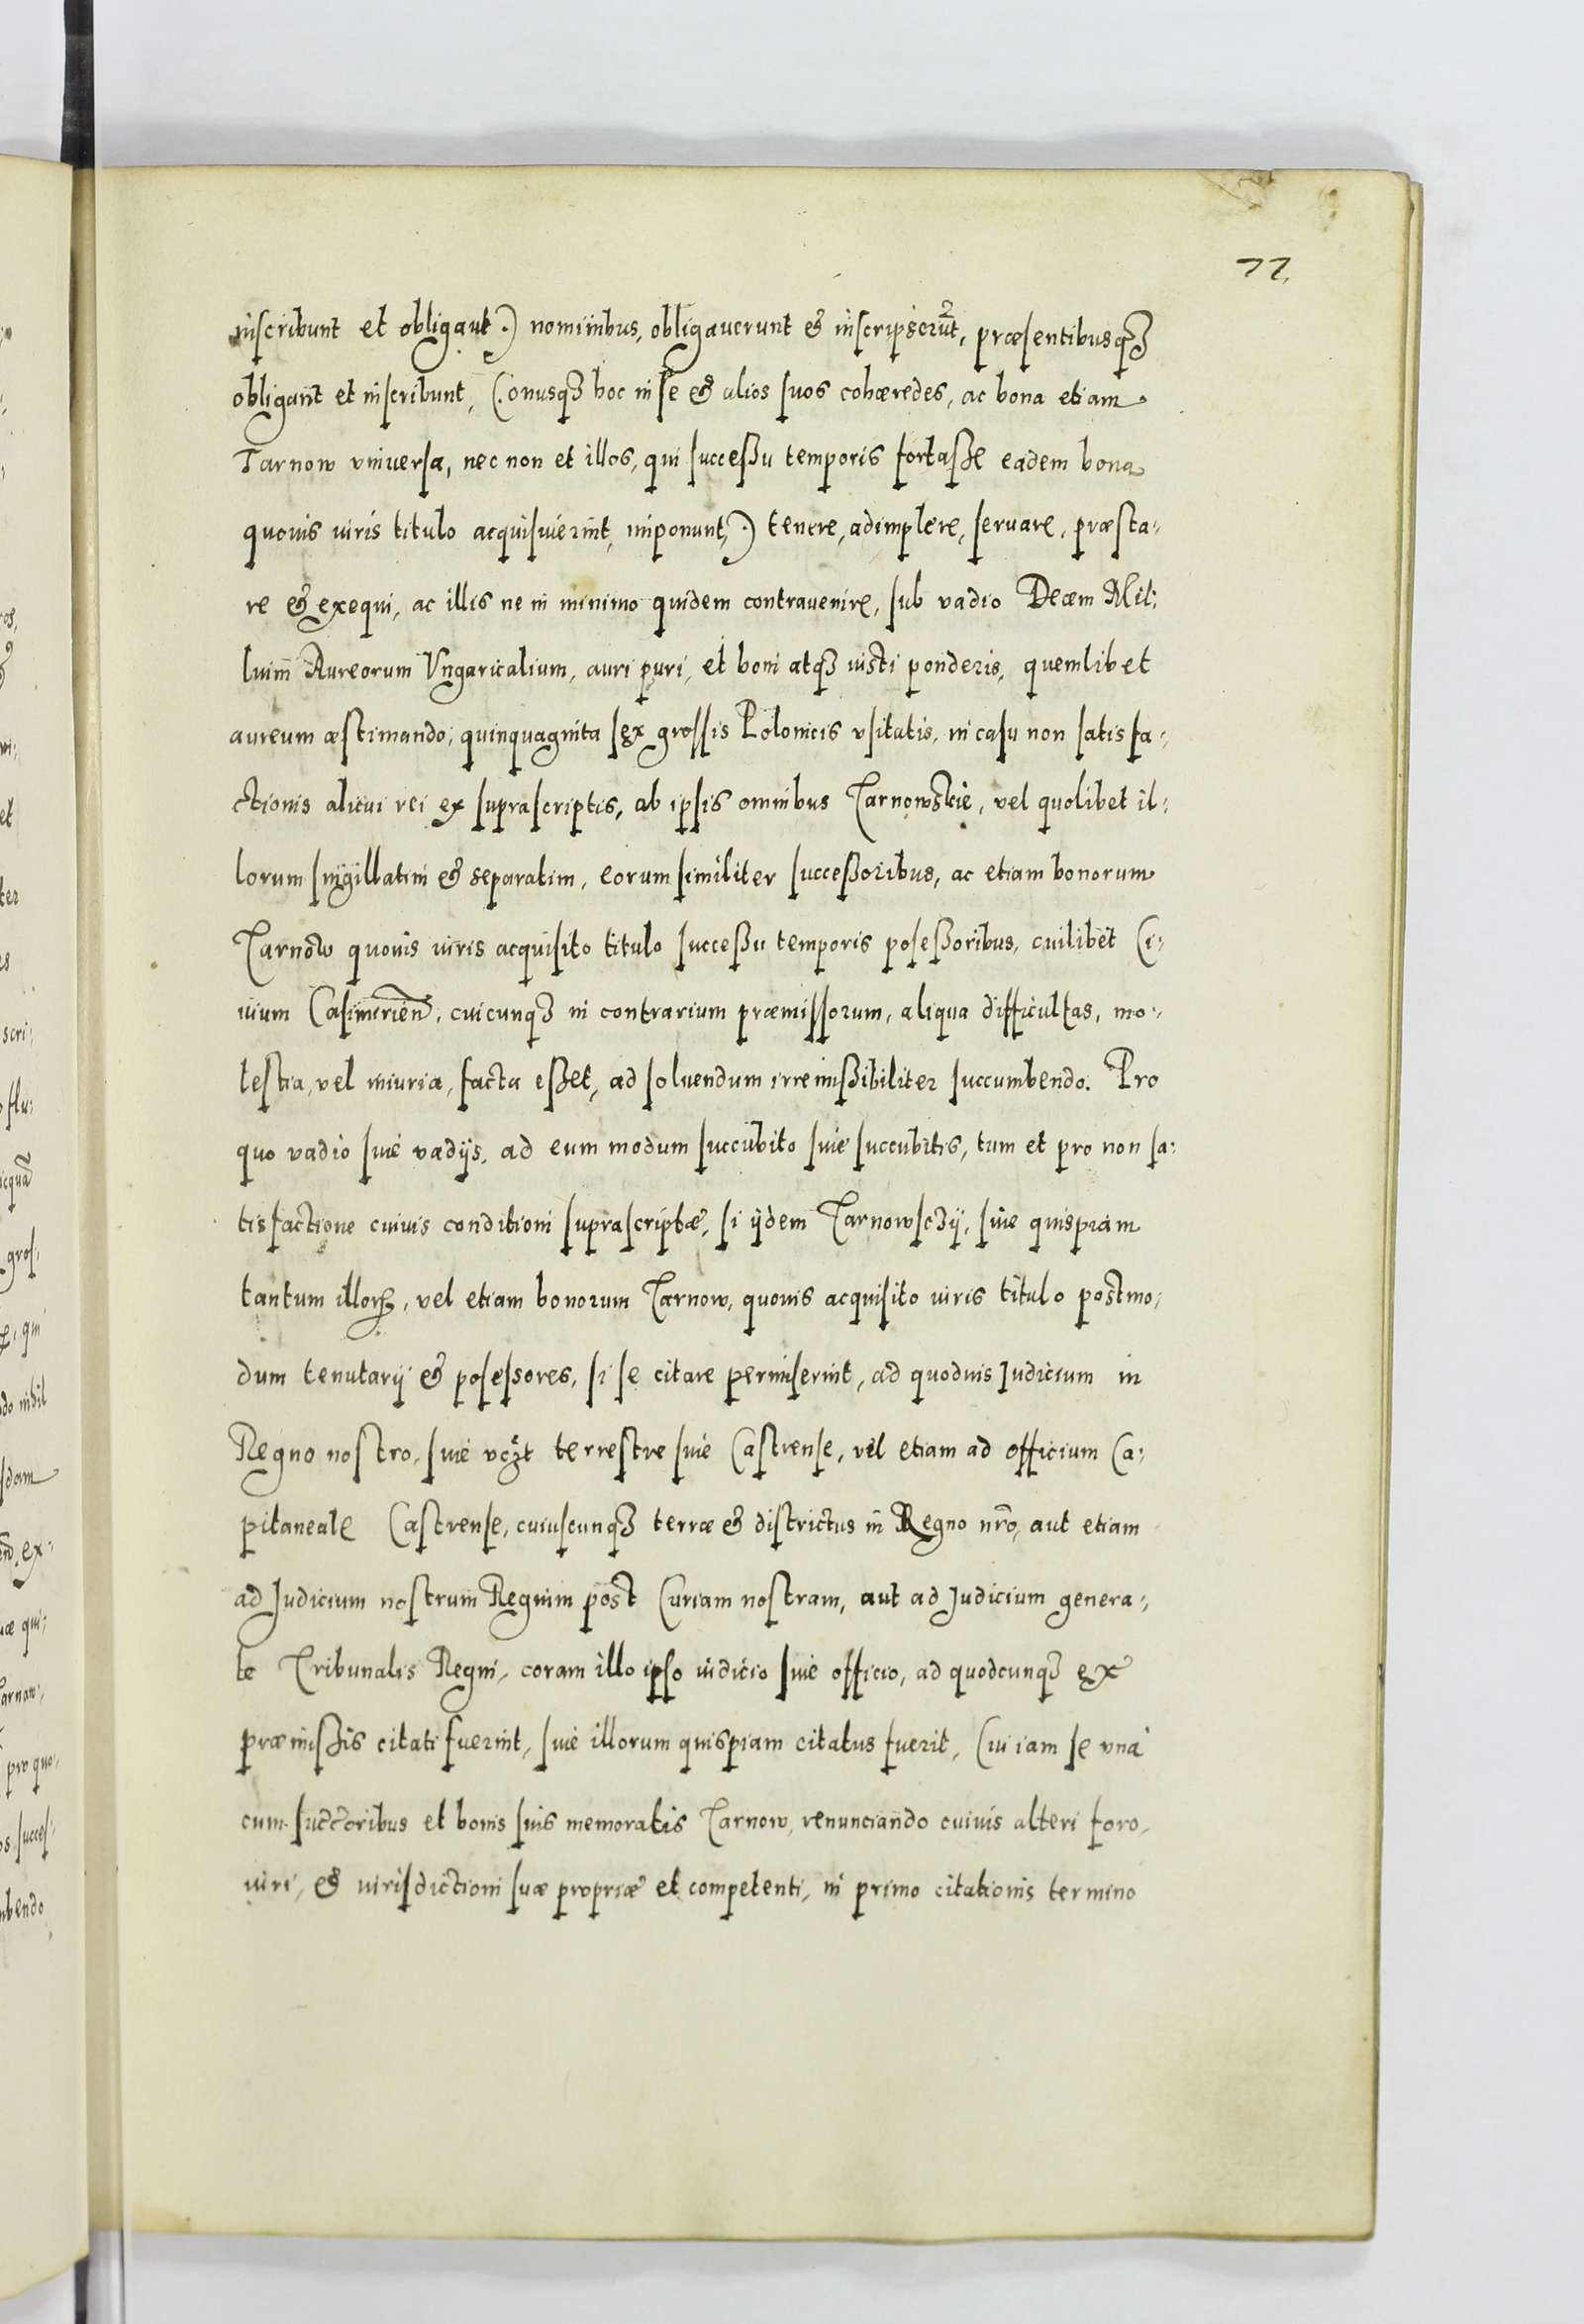 77.
inscribunt et obligant.) nominibus, obligauerunt & inscripserūt, præsentibusq₃
obligant et inscribunt, (.onusq₃ hoc in se & alios suos cohæredes, ac bona etiam
Tarnow vniuersa, nec non et illos, qui succeßu temporis fortaße eadem bona
quouis iuris titulo acquisiuerint, imponunt,.) tenere, adimplere, seruare, præsta-
re & exequi, ac illis ne in minimo quidem contrauenire, sub vadio Decem Mil:
lium Aureorum Vngaricalium, auri puri, et boni atq₃ iusti ponderis, quemlibet
aureum æstimando, quinquaginta sex grossis Polonicis vsitatis, in casu non satisfa-
ctionis alicui rei ex suprascriptis, ab ipsis omnibus Tarnowskie, vel quolibet il-
lorum singillatim & separatim, eorum similiter succeßoribus, ac etiam bonorum
Tarnow quouis iuris acquisito titulo succeßu temporis poseßoribus, cuilibet Ci-
uium Casimirien̄, cuicunq₃ in contrarium præmissorum, aliqua difficultas, mo-
lestia, vel iniuria, facta eßet, ad soluendum irremißibiliter succumbendo. Pro
quo vadio siue vadijs, ad eum modum succubito siue succubitis, tum et pro non sa-
tisfactione cuiuis conditioni suprascriptæ, si ijdem Tarnowsc₃ij, siue quispiam
tantum illoꝝ, vel etiam bonorum Tarnow, quouis acquisito iuris titulo postmo-
dum tenutarij & posessores, si se citare permiserint, ad quoduis Iudicium in
Regno nostro, siue vc₃t terrestre siue Castrense, vel etiam ad officium Ca-
pitaneale Castrense, cuiuscunq₃ terræ & districtus in Regno nr̄o, aut etiam
ad Iudicium nostrum Regium post Curiam nostram, aut ad Iudicium genera-
le Tribunalis Regni, coram illo ipso iudicio siue officio, ad quodcunq₃ ex
præmißis citati fuerint, siue illorum quispiam citatus fuerit, Cui iam se vnà
cum succ̄oribus et bonis suis memoratis Tarnow, renunciando cuiuis alteri foro,
iuri, & iurisdictioni suæ propriæ et competenti, in primo citationis termino